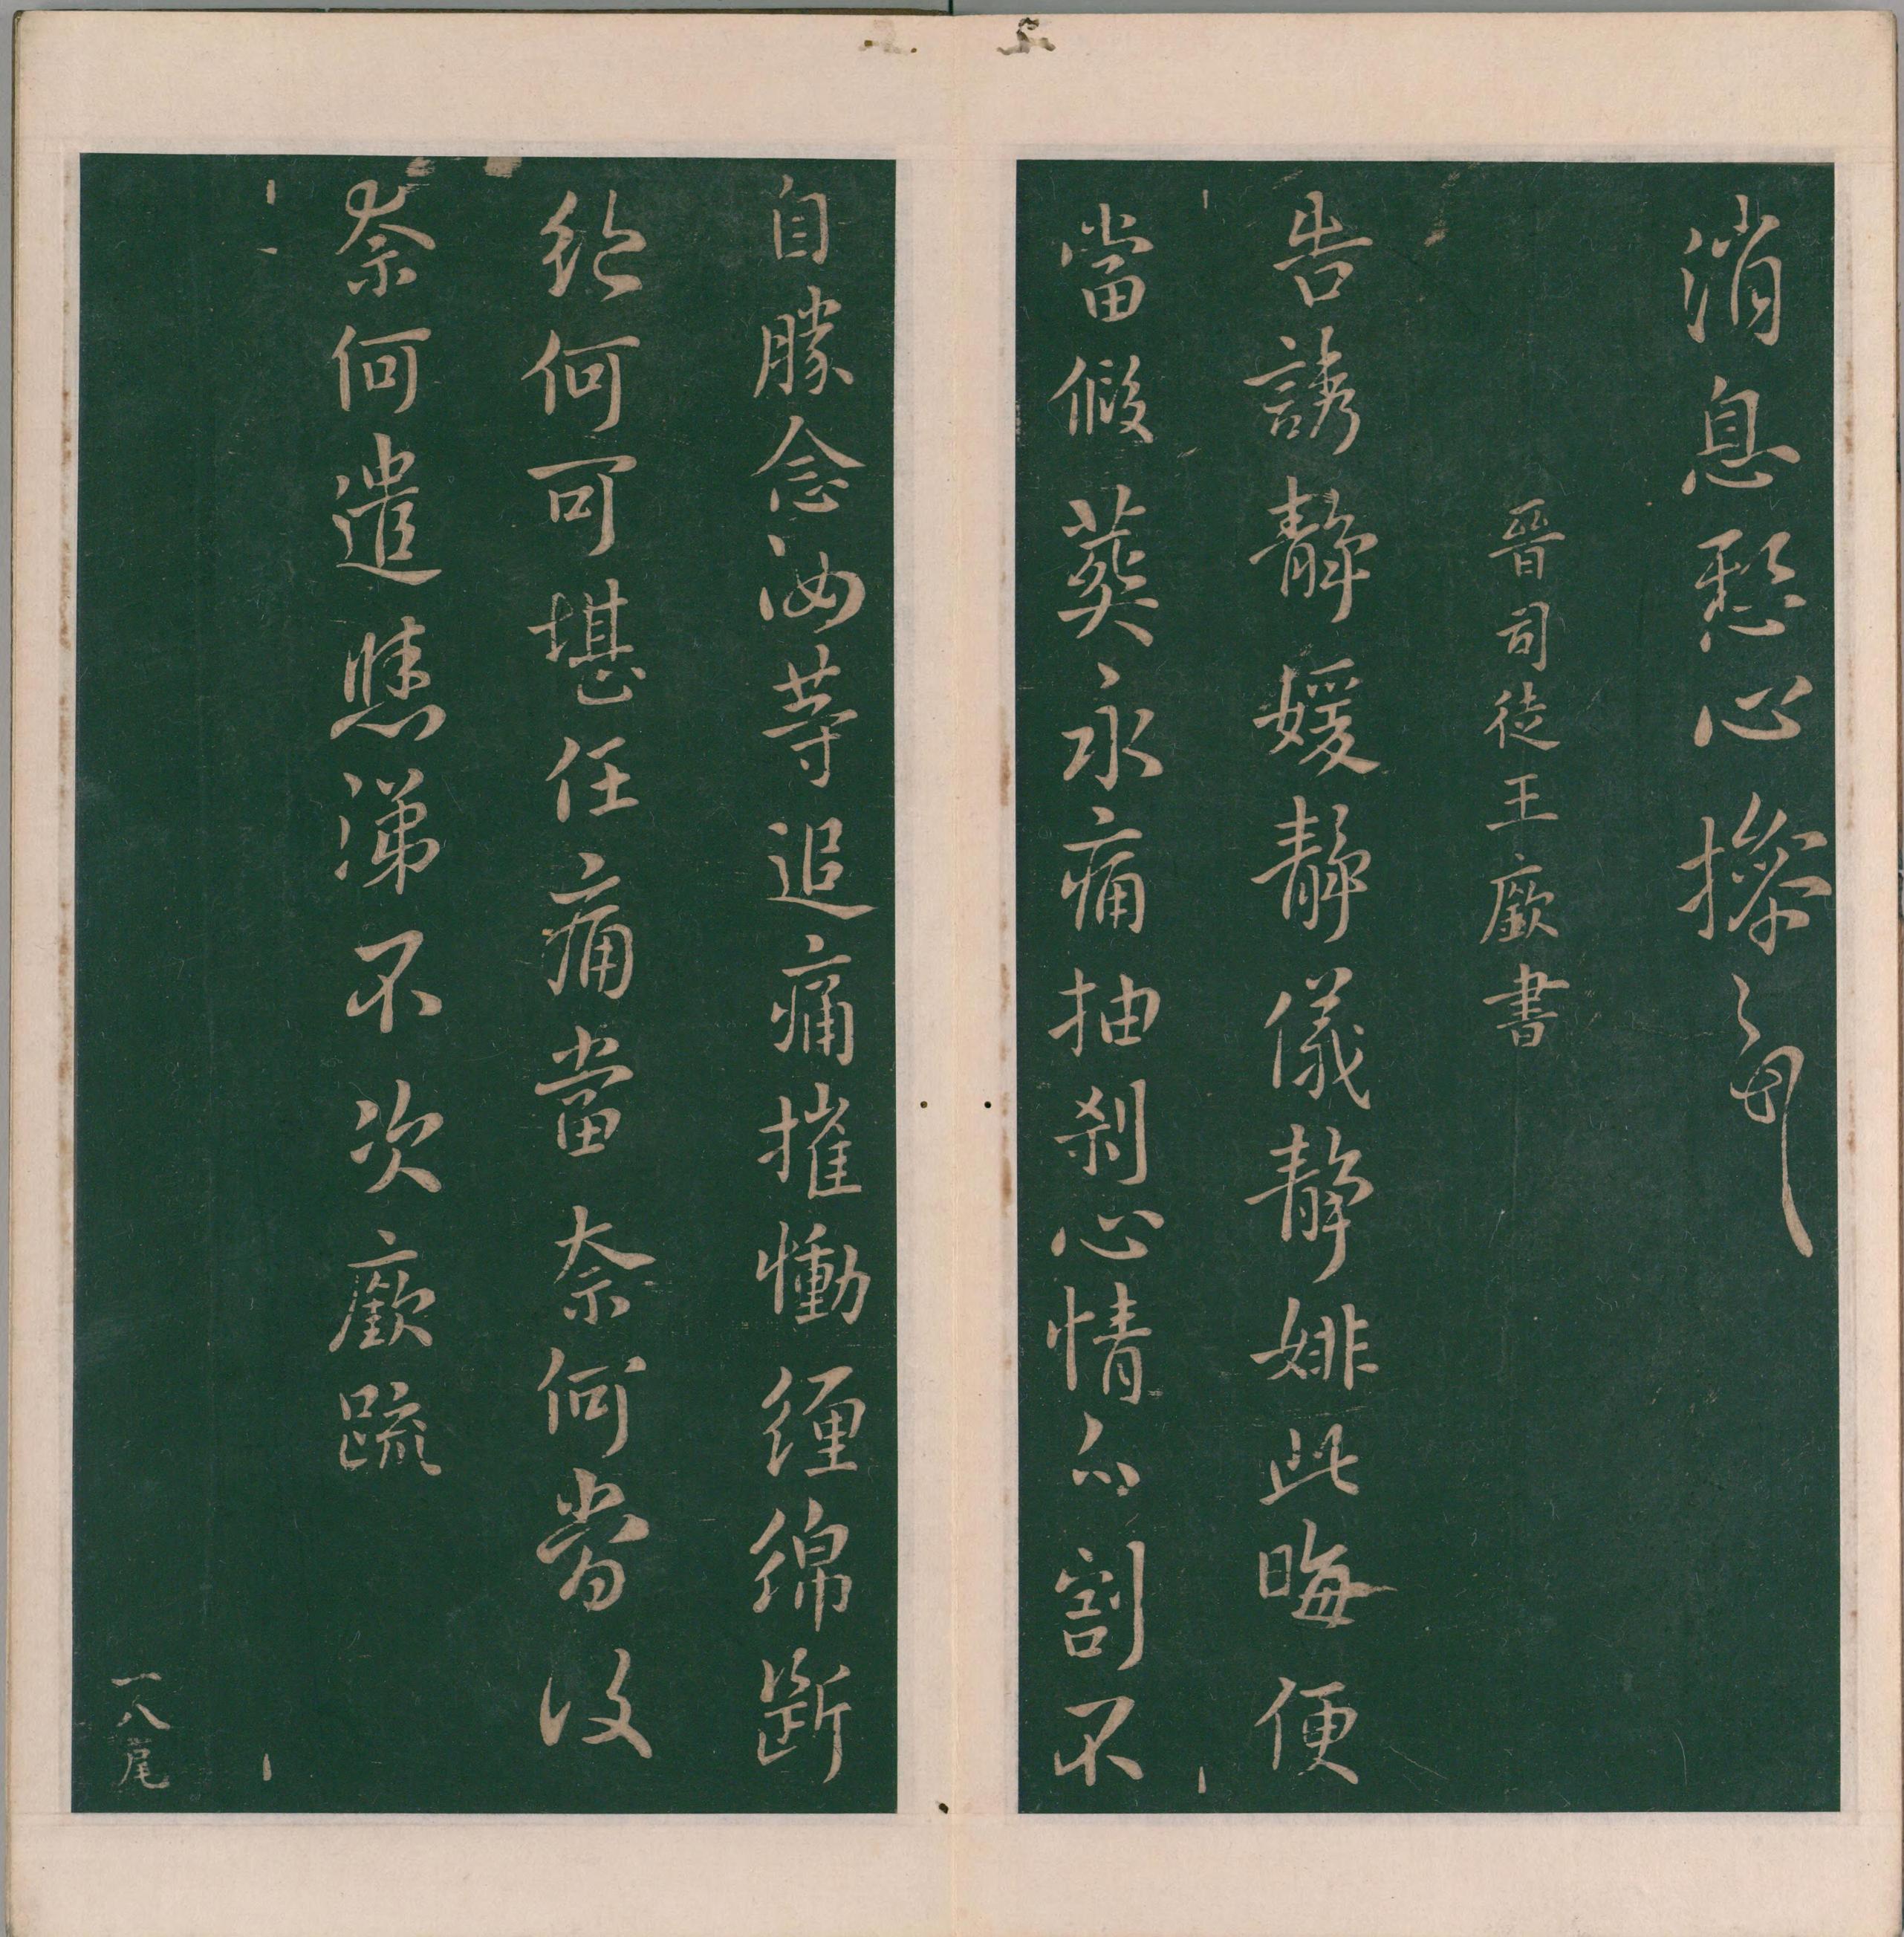 消息愁心操
晉司徒王廞書
告誘靜媛靜儀靜婔此晦便
當假葬永痛抽剝心情分割不
自勝念汝等追痛摧慟纏綿斷
絕何可堪任痛當奈何當復
奈何遣涕不次廞疏
一八尾